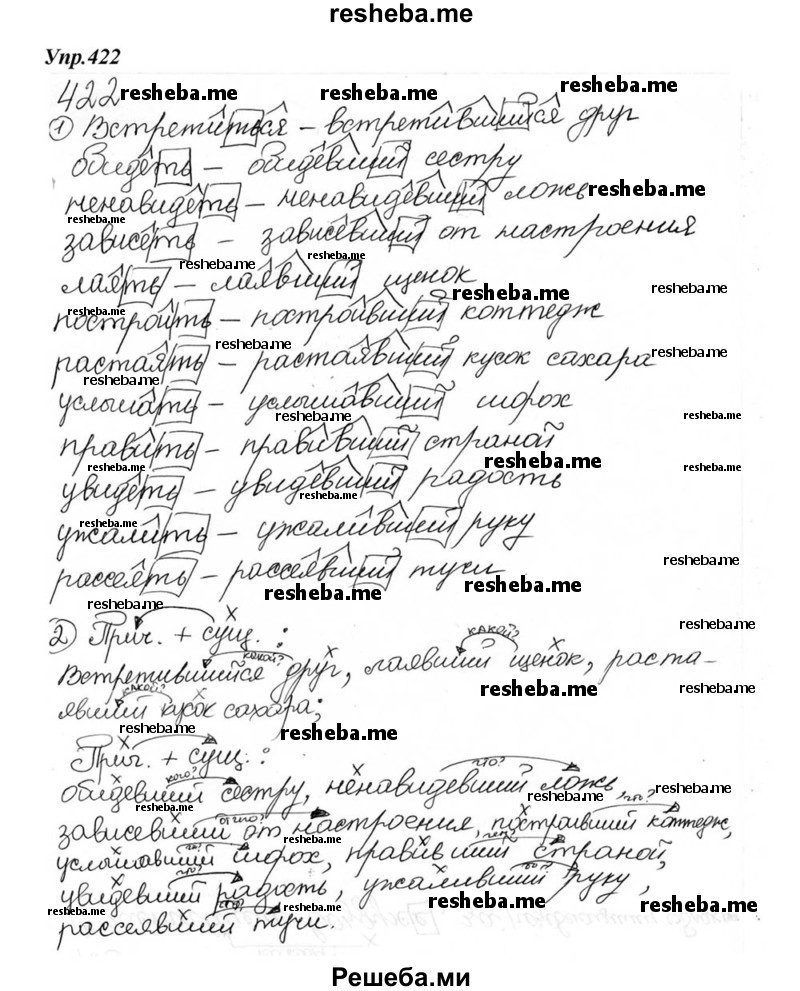 resheba.me
Упр.422
422 resheba.me resheba.me resheba.me
1) Встретиться – встретившийся друг
обидеть – обидевший сестру
ненавидеть – ненавидевший ложь resheba.me
resheba.me
зависеть – зависевший от настроения
resheba.me resheba.me
лаять – лаявший щенок
resheba.me resheba.me
resheba.me
построить – построивший коттедж
resheba.me
растаять – растаявший кусок сахара resheba.me
resheba.me
услышать – услышавший шорох
resheba.me resheba.me
править – правивший страной
resheba.me resheba.me resheba.me
увидеть – увидевший радость
resheba.me
resheba.me
ужалить – ужаливший руку
resheba.me
рассеять – рассеявший тучи
resheba.me resheba.me resheba.me
resheba.me
2) Прич. + сущ. :
какой? какой?
Встретившийся друг, лаявший щенок, раста-
resheba.me resheba.me
какой?
явший кусок сахара;
resheba.me resheba.me
Прич. + сущ. :
кого? что?
обидевший сестру, ненавидевший ложь,
resheba.me resheba.me resheba.me
от чего? что?
зависевший от настроения, построивший коттедж,
что? чем?
услышавший шорох, правивший страной,
resheba.me resheba.me
что? что?
увидевший радость, ужаливший руку,
resheba.me resheba.me resheba.me
что?
рассеявший тучи.
Решеба.ми